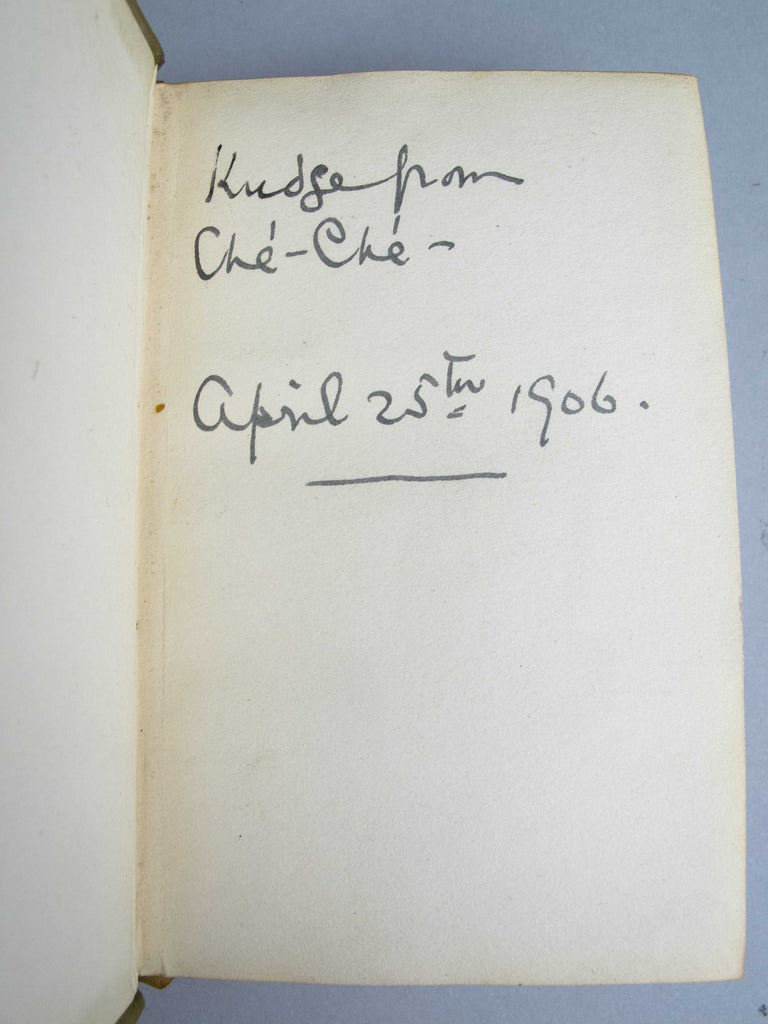 Kudge from
Ché-Ché -
April 25th 1906.